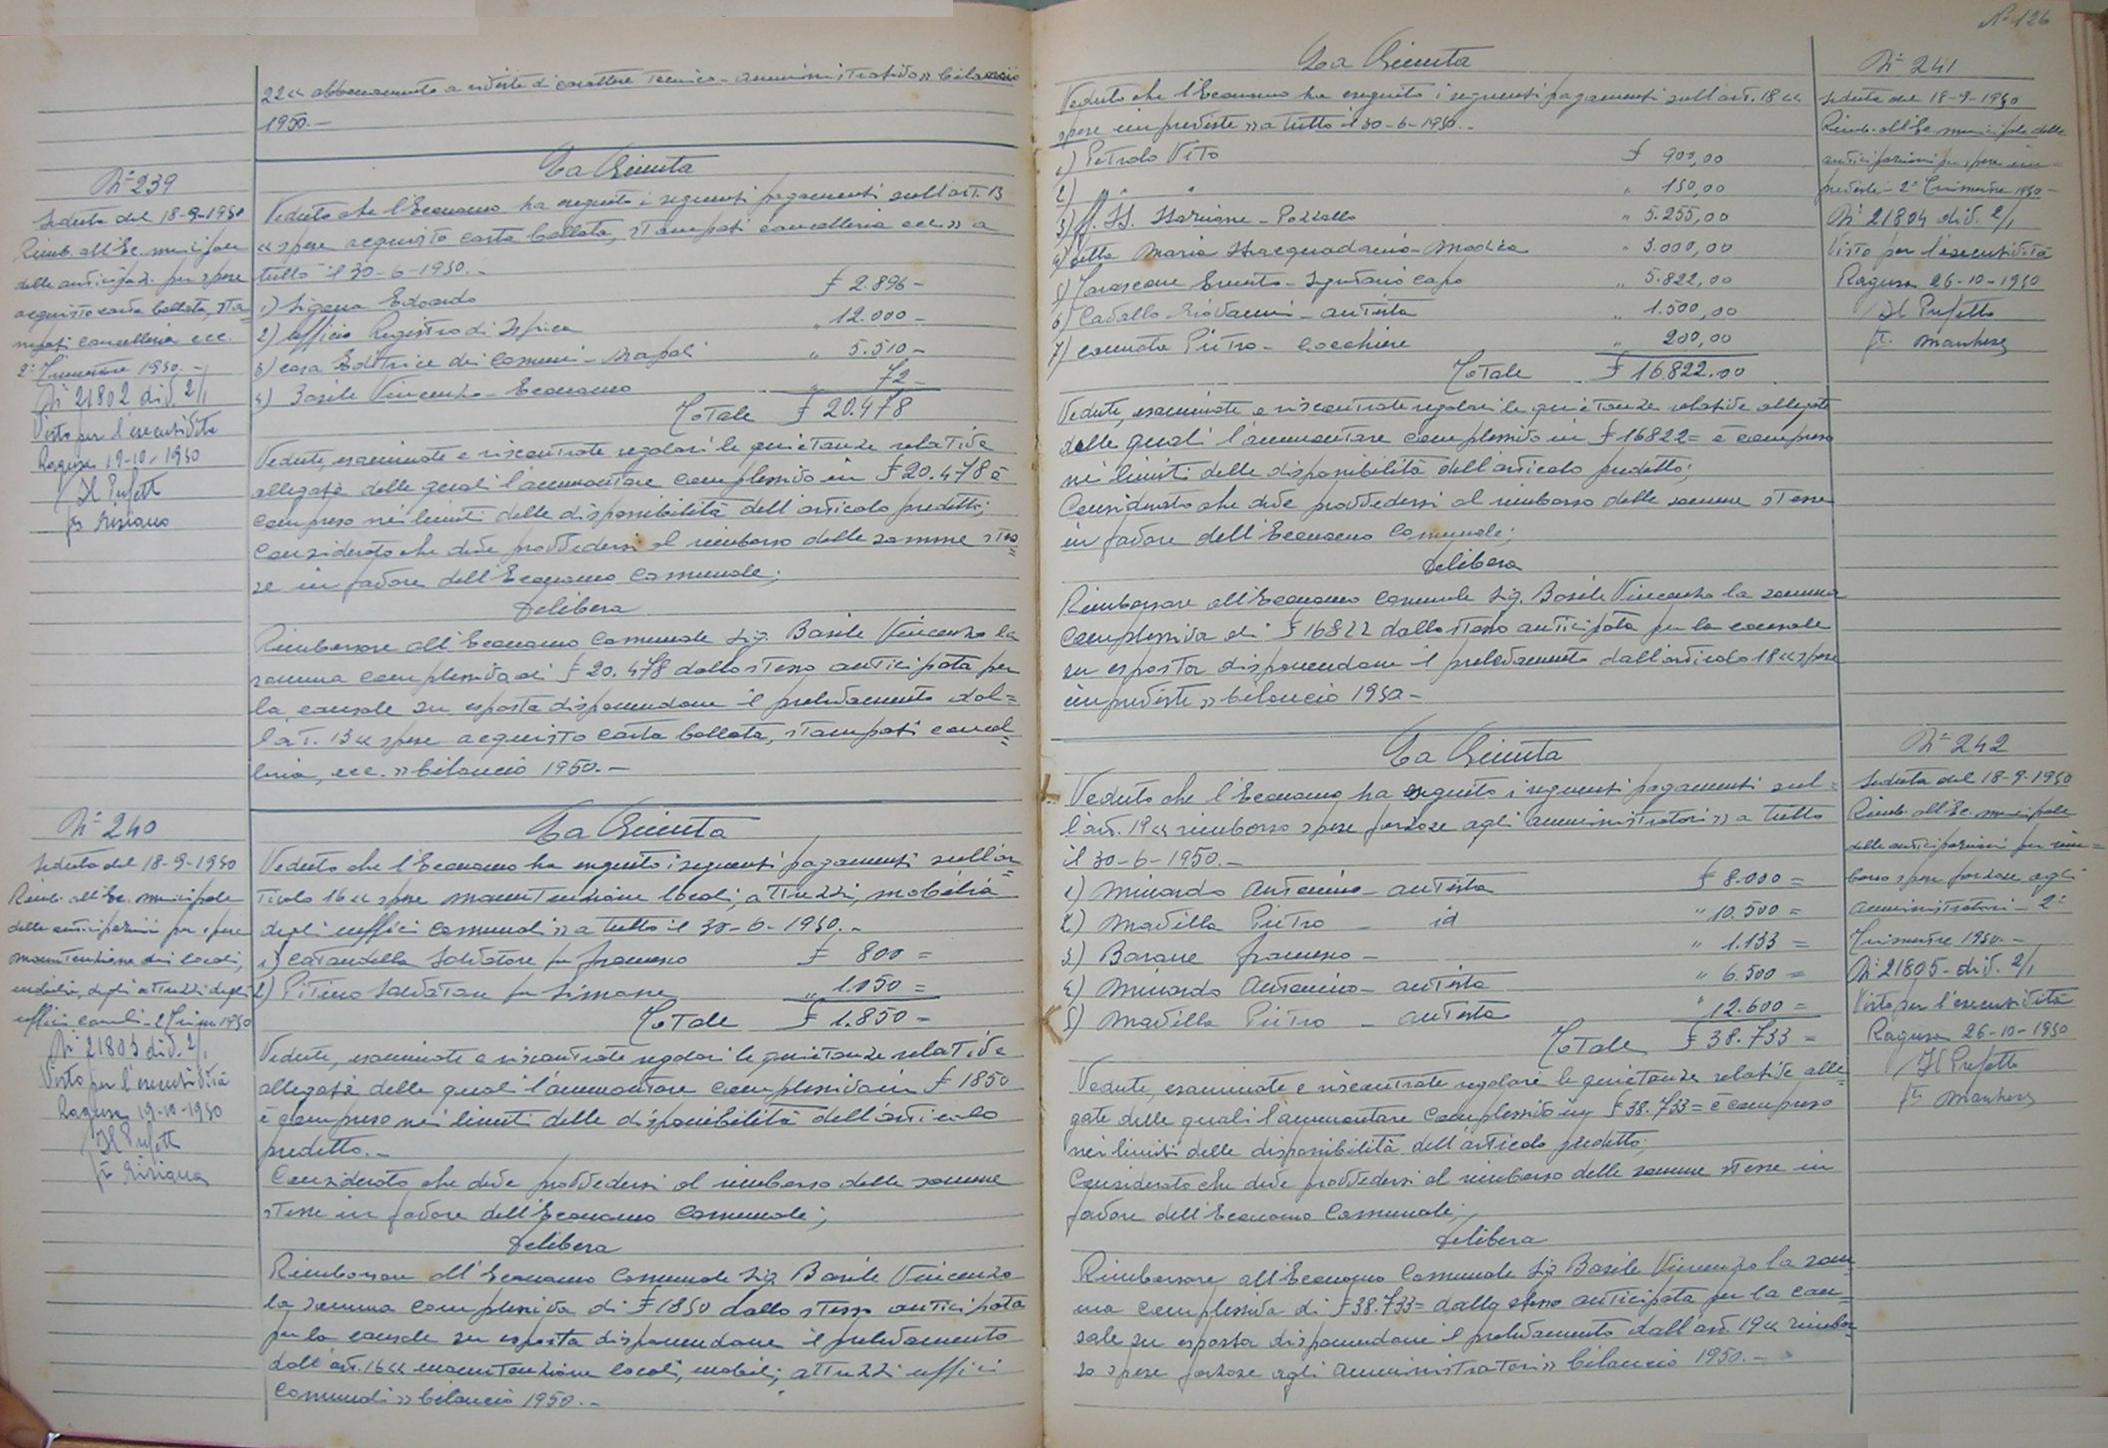 22 « abbonamento a riviste di carattere tecnico - amministrativo » bilancio
1950.-
N° 239
Seduta del 18-9-1950
Rimb. all'Ec. municipale
delle anticipaz. per spese
acquisto carta bollata, sta=
mpati cancelleria ecc.
2° Trimestre 1950.-
N° 21802 div. 2/1
Visto per l'esecutività
Ragusa 19-10-1950
Il Prefetto
La Giunta
Veduto che l'Economo ha eseguito i seguenti pagamenti sull'art. 13
« spese acquisto carta bollata, stampati cancelleria ecc. » a
tutto il 30-6-1950.-
1) Sigona Edoardo £ 2.896 -
2) Ufficio Registro di Ispica " 12.000 -
3) Casa Editrice dei Comuni - Napoli " 5.510 -
4) Basile Vincenzo - Economo " 72 -
Totale £ 20.478
Vedute, esaminate e riscontrate regolari le quietanze relative
allegate delle quali l'ammontare complessivo in £ 20.478 è
compreso nei limiti delle disponibilità dell'articolo predetto;
Considerato che deve provvedersi al rimborso delle somme stes=
se in favore dell'Economo Comunale;
Delibera
Rimborsare all'Economo Comunale Sig. Basile Vincenzo la
somma complessiva di £ 20.478 dallo stesso anticipata per
la causale su esposta disponendone il prelevamento dal=
l'art. 13 « spese acquisto carta bollata, stampati cancel=
leria, ecc. » bilancio 1950.-
N° 240
Seduta del 18-9-1950
Rimb. all'Ec. municipale
delle anticipazioni per spese
manutenzione dei locali,
mobilia, degli attrezzi degli
uffici comunali - 2 Trim 1950
N° 21803 div. 2/1
Visto per l'esecutività
Ragusa 19-10-1950
Il Prefetto
La Giunta
Veduto che l'Economo ha eseguito i seguenti pagamenti sull'ar=
ticolo 16 « spese manutenzione locali, attrezzi, mobilia
degli uffici comunali » a tutto il 30-6-1950.-
1) Cataudella Salvatore fu Francesco £ 800 =
2) Pitino Salvatore fu Simone " 1.050 =
Totale £ 1.850 =
Vedute, esaminate e riscontrate regolari le quietanze relative
allegate delle quali l'ammontare complessivo in £ 1850
è compreso nei limiti delle disponibilità dell'articolo
predetto.-
Considerato che deve provvedersi al rimborso delle somme
stesse in favore dell'Economo Comunale;
Delibera
Rimborsare all'Economo Comunale Sig. Basile Vincenzo
la somma complessiva di £ 1850 dallo stesso anticipata
per la causale su esposta disponendone il prelevamento
dall'art. 16 « manutenzione locali, mobili, attrezzi uffici
Comunali » bilancio 1950.-
N° 126
La Giunta
Veduto che l'Economo ha eseguito i seguenti pagamenti sull'art. 18 «
spese impreviste » a tutto il 30-6-1950.-
1) Petrolo Vito £ 900,00
2) " " " 150,00
3) - Pozzallo " 5.255,00
4) Maria - Modica " 3.000,00
5) Tarascone Ernesto - Segretario capo " 5.822,00
6) Cavallo Giovanni - autista " 1.500,00
7) Pietro - Cocchiere " 200,00
Totale £ 16.822.00
Vedute, esaminate e riscontrate regolari le quietanze relative allegate
delle quali l'ammontare complessivo in £ 16822 = è compreso
nei limiti delle disponibilità dell'articolo predetto;
Considerato che deve provvedersi al rimborso delle somme stesse
in favore dell'Economo Comunale;
Delibera
Rimborsare all'Economo Comunale Sig. Basile Vincenzo la somma
complessiva di £ 16822 dallo stesso anticipata per la causale
su esposta disponendone il prelevamento dall'articolo 18 « spese
impreviste » bilancio 1950 -
N° 241
Seduta del 18-9-1950
Rimb. all'Ec. municipale delle
anticipazioni per spese im=
previste - 2° Trimestre 1950 -
N° 21804 div. 2/1
Visto per l'esecutività
Ragusa 26-10-1950
Il Prefetto
La Giunta
Veduto che l'Economo ha eseguito i seguenti pagamenti sul=
l'art. 19 « rimborso spese forzose agli amministratori » a tutto
il 30-6-1950.-
1) Minardo Antonino - autista £ 8.000 =
2) Mavilla Pietro - id " 10.500 =
3) Barone Francesco - " 1.133 =
4) Minardo Antonino - autista " 6.500 =
5) Mavilla Pietro - autista " 12.600 =
Totale £ 38.733 =
Vedute, esaminate e riscontrate regolari le quietanze relative alle=
gate delle quali l'ammontare complessivo in £ 38.733 = è compreso
nei limiti delle disponibilità dell'articolo predetto;
Considerato che deve provvedersi al rimborso delle somme stesse in
favore dell'Economo Comunale;
Delibera
Rimborsare all'Economo Comunale Sig. Basile Vincenzo la som=
ma complessiva di £ 38.733 = dallo stesso anticipata per la cau=
sale su esposta disponendone il prelevamento dall'art. 19 « rimbor=
so spese forzose agli amministratori » bilancio 1950.-
N° 242
Seduta del 18-9-1950
Rimb. all'Ec. municipale
delle anticipazioni per rim=
borso spese forzose agli
amministratori - 2°
Trimestre 1950.-
N° 21805 - div. 2/1
Visto per l'esecutività
Ragusa 26-10-1950
Il Prefetto